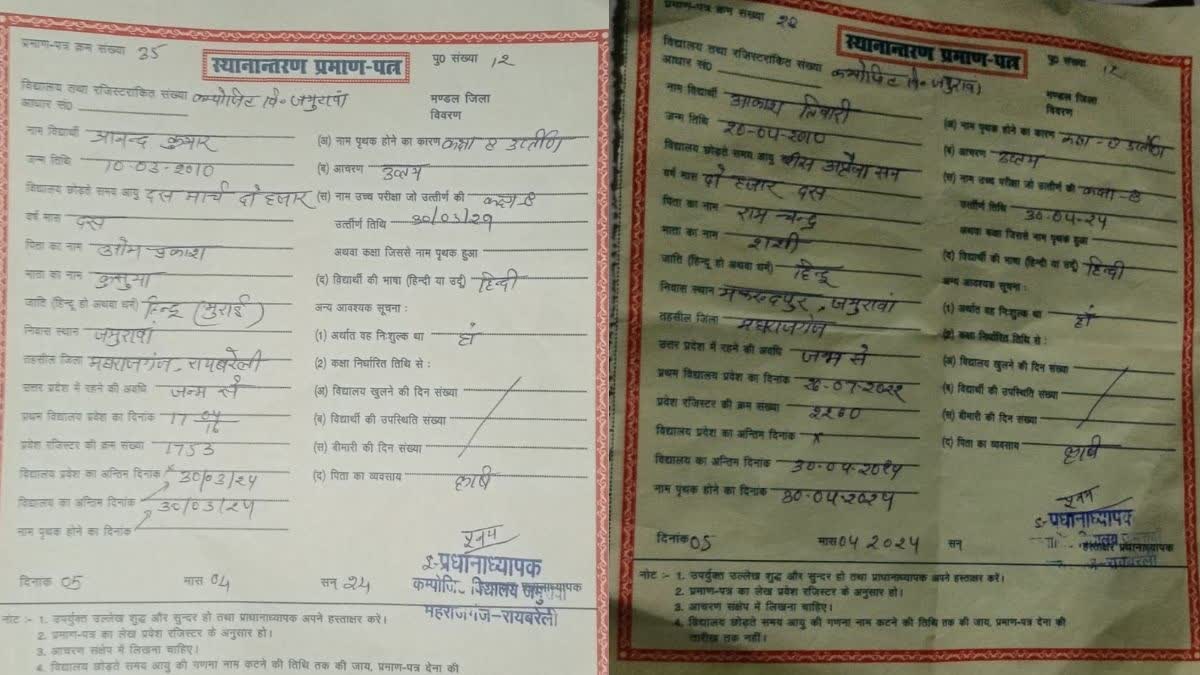 प्रमाण-पत्र क्रम संख्या 35
स्थानान्तरण प्रमाण-पत्र
पु0 संख्या 12
विद्यालय तथा रजिस्टरांकित संख्या कम्पोजिट वि० जमुरावां
आधार सं0
मण्डल जिला
विवरण
नाम विद्यार्थी आनन्द कुमार
(अ) नाम पृथक होने का कारण कक्षा 8 उत्तीर्ण
जन्म तिथि 10-03-2010
(ब) आचरण उत्तम
विद्यालय छोड़ते समय आयु दस मार्च दो हजार
(स) नाम उच्च परीक्षा जो उत्तीर्ण की कक्षा 8
वर्ष मास दस
उत्तीर्ण तिथि 30/03/24
पिता का नाम ओम प्रकाश
अथवा कक्षा जिससे नाम पृथक हुआ
माता का नाम कुसुमा
(द) विद्यार्थी की भाषा (हिन्दी या उर्दू) हिन्दी
जाति (हिन्दू हो अथवा धर्म) हिन्दू (मुराई)
अन्य आवश्यक सूचना :
निवास स्थान जमुरावां
(1) अर्थात वह निःशुल्क था हाँ
तहसील जिला महराजगंज, रायबरेली
(2) कक्षा निर्धारित तिथि से :
उत्तर प्रदेश में रहने की अवधि जन्म से
(अ) विद्यालय खुलने की दिन संख्या
प्रथम विद्यालय प्रवेश का दिनांक 17 04/16
(ब) विद्यार्थी की उपस्थिति संख्या
प्रवेश रजिस्टर की क्रम संख्या 1753
(स) बीमारी की दिन संख्या
विद्यालय प्रवेश का अन्तिम दिनांक × 30/03/24
(द) पिता का व्यवसाय कृषि
विद्यालय का अन्तिम दिनांक 30/03/24
नाम पृथक होने का दिनांक
इ-प्रधानाध्यापक
कम्पोजिट विद्यालय
महराजगंज-रायबरेली
दिनांक 05 मास 04 सन् 24
नोट :- 1. उपर्युक्त उल्लेख शुद्ध और सुन्दर हो तथा प्राधानाध्यापक अपने हस्ताक्षर करें।
2. प्रमाण-पत्र का लेख प्रवेश रजिस्टर के अनुसार हो।
3. आचरण संक्षेप में लिखना चाहिए।
4. विद्यालय छोड़ते समय आयु की गणना नाम कटने की तिथि तक की जाय, प्रमाण-पत्र देना की
प्रमाण-पत्र क्रम संख्या
स्थानान्तरण प्रमाण-पत्र
पु0 संख्या 12
विद्यालय तथा रजिस्टरांकित संख्या कम्पोजिट वि० जमुरावां
आधार सं0
मण्डल जिला
विवरण
नाम विद्यार्थी आकाश तिवारी
(अ) नाम पृथक होने का कारण कक्षा-8 उत्तीर्ण
जन्म तिथि 20-04-2010
(ब) आचरण उत्तम
विद्यालय छोड़ते समय आयु बीस अप्रैल सन
(स) नाम उच्च परीक्षा जो उत्तीर्ण की कक्षा-8
वर्ष मास दो हजार दस
उत्तीर्ण तिथि 30-04-24
पिता का नाम राम चन्द्र
अथवा कक्षा जिससे नाम पृथक हुआ
माता का नाम शशी
(द) विद्यार्थी की भाषा (हिन्दी या उर्दू) हिन्दी
जाति (हिन्दू हो अथवा धर्म) हिन्दू
अन्य आवश्यक सूचना :
निवास स्थान मकरन्दपुर, जमुरावां
(1) अर्थात वह निःशुल्क था हाँ
तहसील जिला महाराजगंज
(2) कक्षा निर्धारित तिथि से :
उत्तर प्रदेश में रहने की अवधि जन्म से
(अ) विद्यालय खुलने की दिन संख्या
प्रथम विद्यालय प्रवेश का दिनांक
(ब) विद्यार्थी की उपस्थिति संख्या
प्रवेश रजिस्टर की क्रम संख्या
(स) बीमारी की दिन संख्या
विद्यालय प्रवेश का अन्तिम दिनांक ×
(द) पिता का व्यवसाय कृषि
विद्यालय का अन्तिम दिनांक 30-04-2024
नाम पृथक होने का दिनांक 30-04-2024
इ-प्रधानाध्यापक
हस्ताक्षर प्रधानाध्यापक
दिनांक 05 मास 04 2024 सन्
नोट :- 1. उपर्युक्त उल्लेख शुद्ध और सुन्दर हो तथा प्राधानाध्यापक अपने हस्ताक्षर करें।
2. प्रमाण-पत्र का लेख प्रवेश रजिस्टर के अनुसार हो।
3. आचरण संक्षेप में लिखना चाहिए।
4. विद्यालय छोड़ते समय आयु की गणना नाम कटने की तिथि तक की जाय, प्रमाण-पत्र देना की
तारीख तक नहीं।